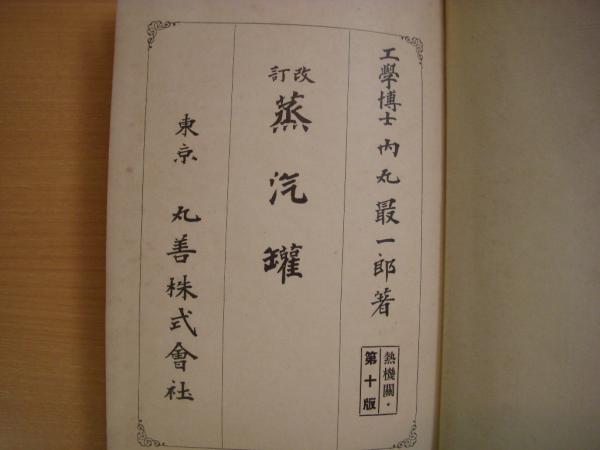 工學博士 內丸最一郎著
熱機關・
第十版
改訂
蒸汽罐
東京 丸善株式會社